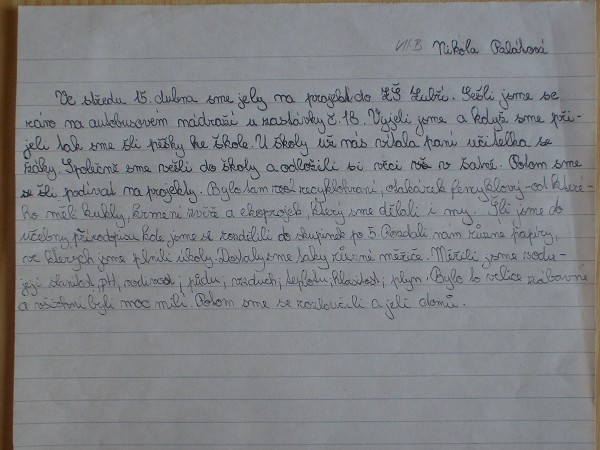 VII.B Nikola Paláhová
Ve středu 15. dubna sme jely na projekt do ZŠ Zubří. Sešli jsme se
ráno na autobusovém nádraží u zastávky č. 18. Vyjeli jsme a když sme při-
jeli tak sme šli pěšky ke škole. U školy už nás vítala paní učitelka se
žáky. Společně sme vešli do školy a odložili si věci v šatně. Potom sme
se šli podívat na projekty. Bylo tam recyklohraní, od které-
ho měli kukly, krmení zvíře a ekoprojek, který sme dělali i my. Šli jsme do
učebny přírodopisu kde jsme se rozdělili do skupinek po 5. Rozdali nam různe papíry,
ve kterých jsme plnili úkoly. Dostaly sme taky různé měřiče. Měřili jsme vodu-
její slanost, pH, vodivost; půdu, vzduch; teplotu, hlasitost, plyn. Bylo to velice zábavné
a všichni byli moc milí. Potom sme se rozloučili a jeli domů.